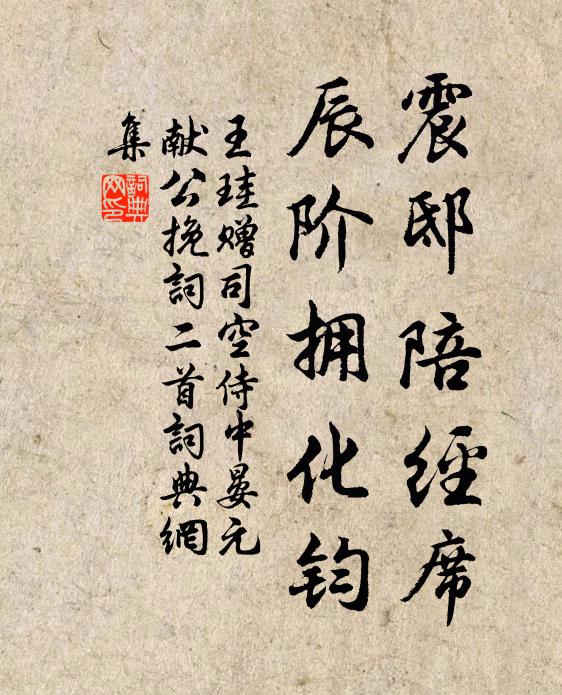 震邸陪經席
辰阶拥化钧
王珪赠司空侍中晏元
献公挽詞二首詞典網
集
詞典网印